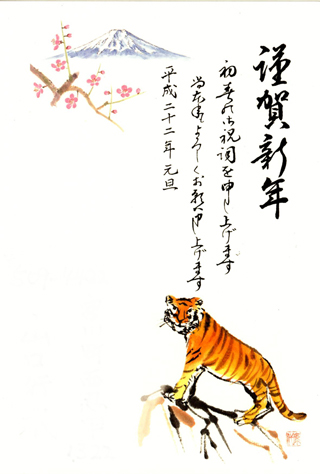 謹賀新年
初春の御祝詞を申し上げます
当年もよろしくお願い申し上げます
平成二十二年 元旦